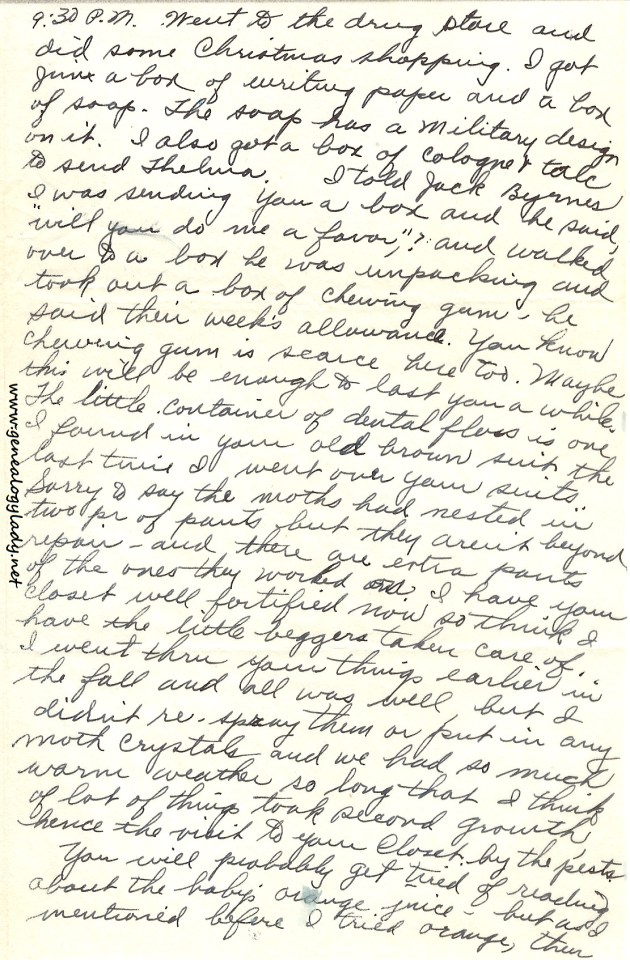 9:30 P.M. Went to the drug store and
did some Christmas shopping. I got
Junx a box of writing paper and a box
of soap. The soap has a military design
on it. I also got a box of cologne & talc
to send Thelma. I told Jack Byrnes
I was sending you a box and he said,
"will you do me a favor,"? and walked
over to a box he was unpacking and
took out a box of chewing gum - he
said their weeks allowance. You know
chewing gum is scarce here too. Maybe
this will be enough to last you a while.
The little container of dental floss is one
I found in your old brown suit the
last time I went over your suits.
Sorry to say the moths had nested in
two pr of pants but they aren't beyond
repair - and there are extra pants
of the ones they worked on. I have your
closet well fortified now so think I
have the little beggers taken care of.
I went thru your things earlier in
the fall and all was well but I
didn't re-spray them or put in any
moth crystals and we had so much
warm weather so long that I think
of lot of things took second growth
hence the visit to your closet by the pests.
You will probably get tired of reading
about the baby's orange juice - but as I
mentioned before I tried orange, then
www.genealogylady.net